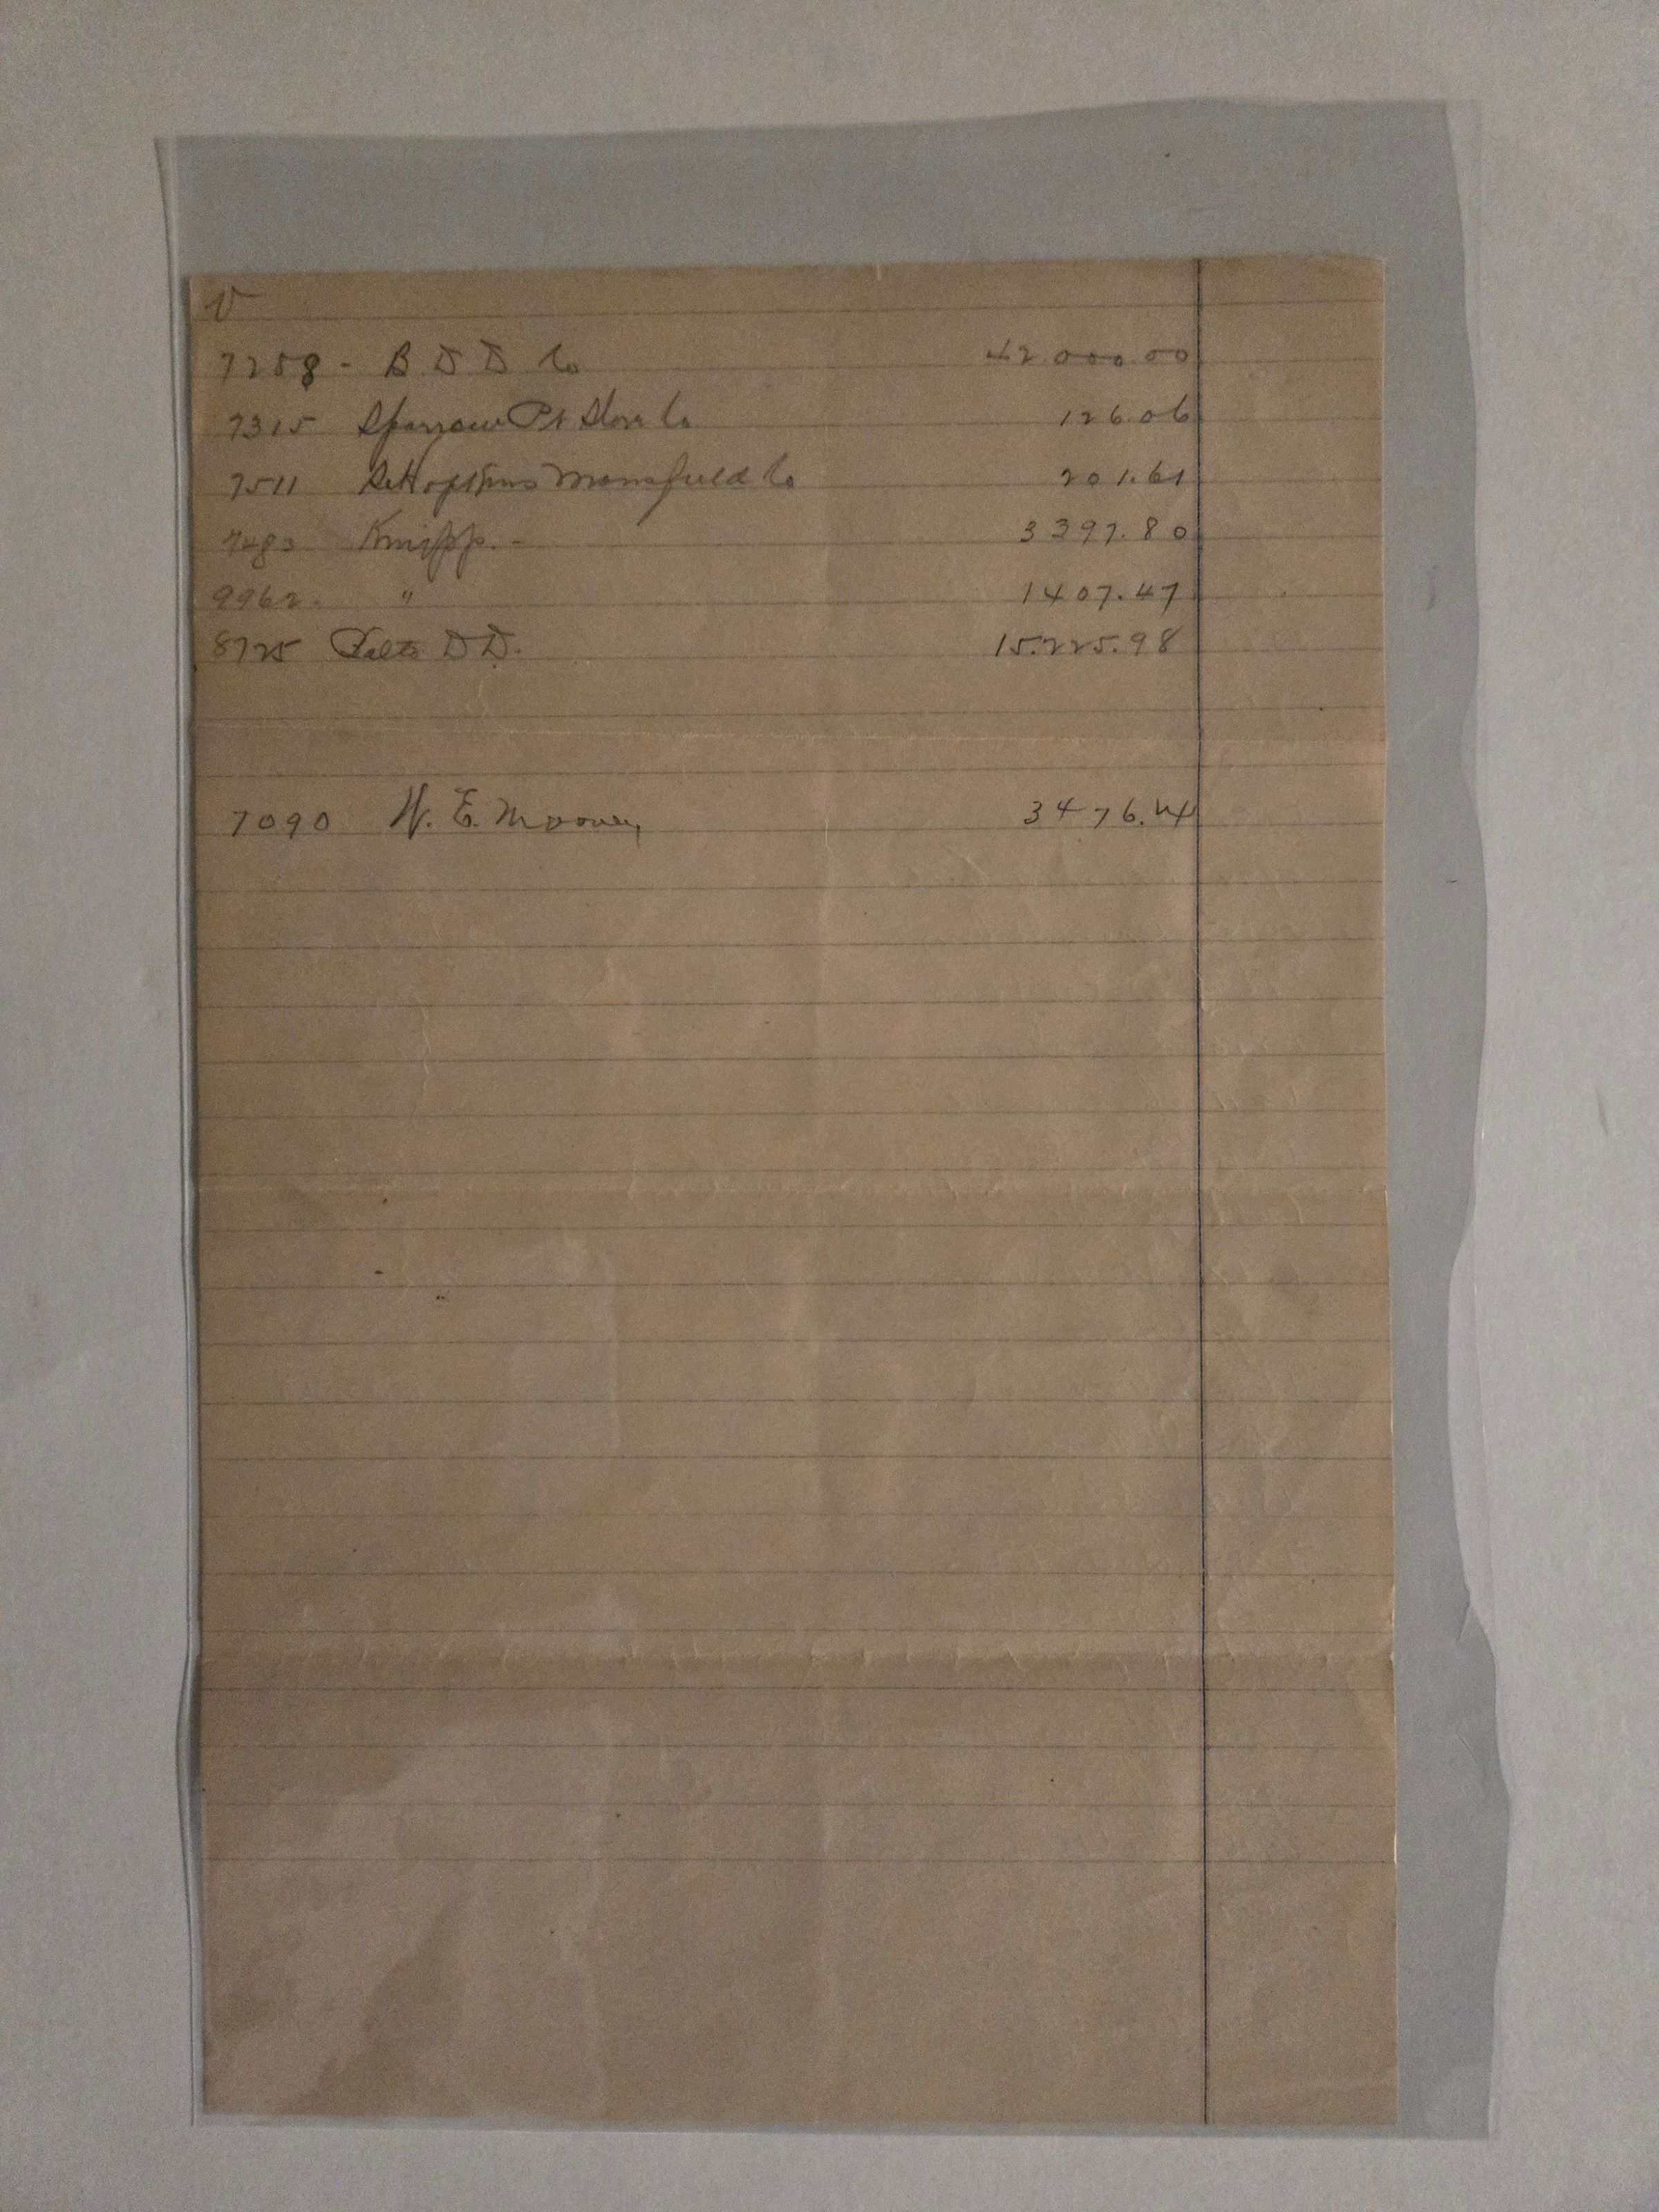 V
7258 - B. D D Co 42 000.00
7315 Sparrow Pt Store Co 126.06
7511 Mansfield Co 201.61
7483 Knipp. - 3397.80
9962. " 1407.47
8725 Balto D D. 15.225.98
7090 W. E. Mooney 3476.44